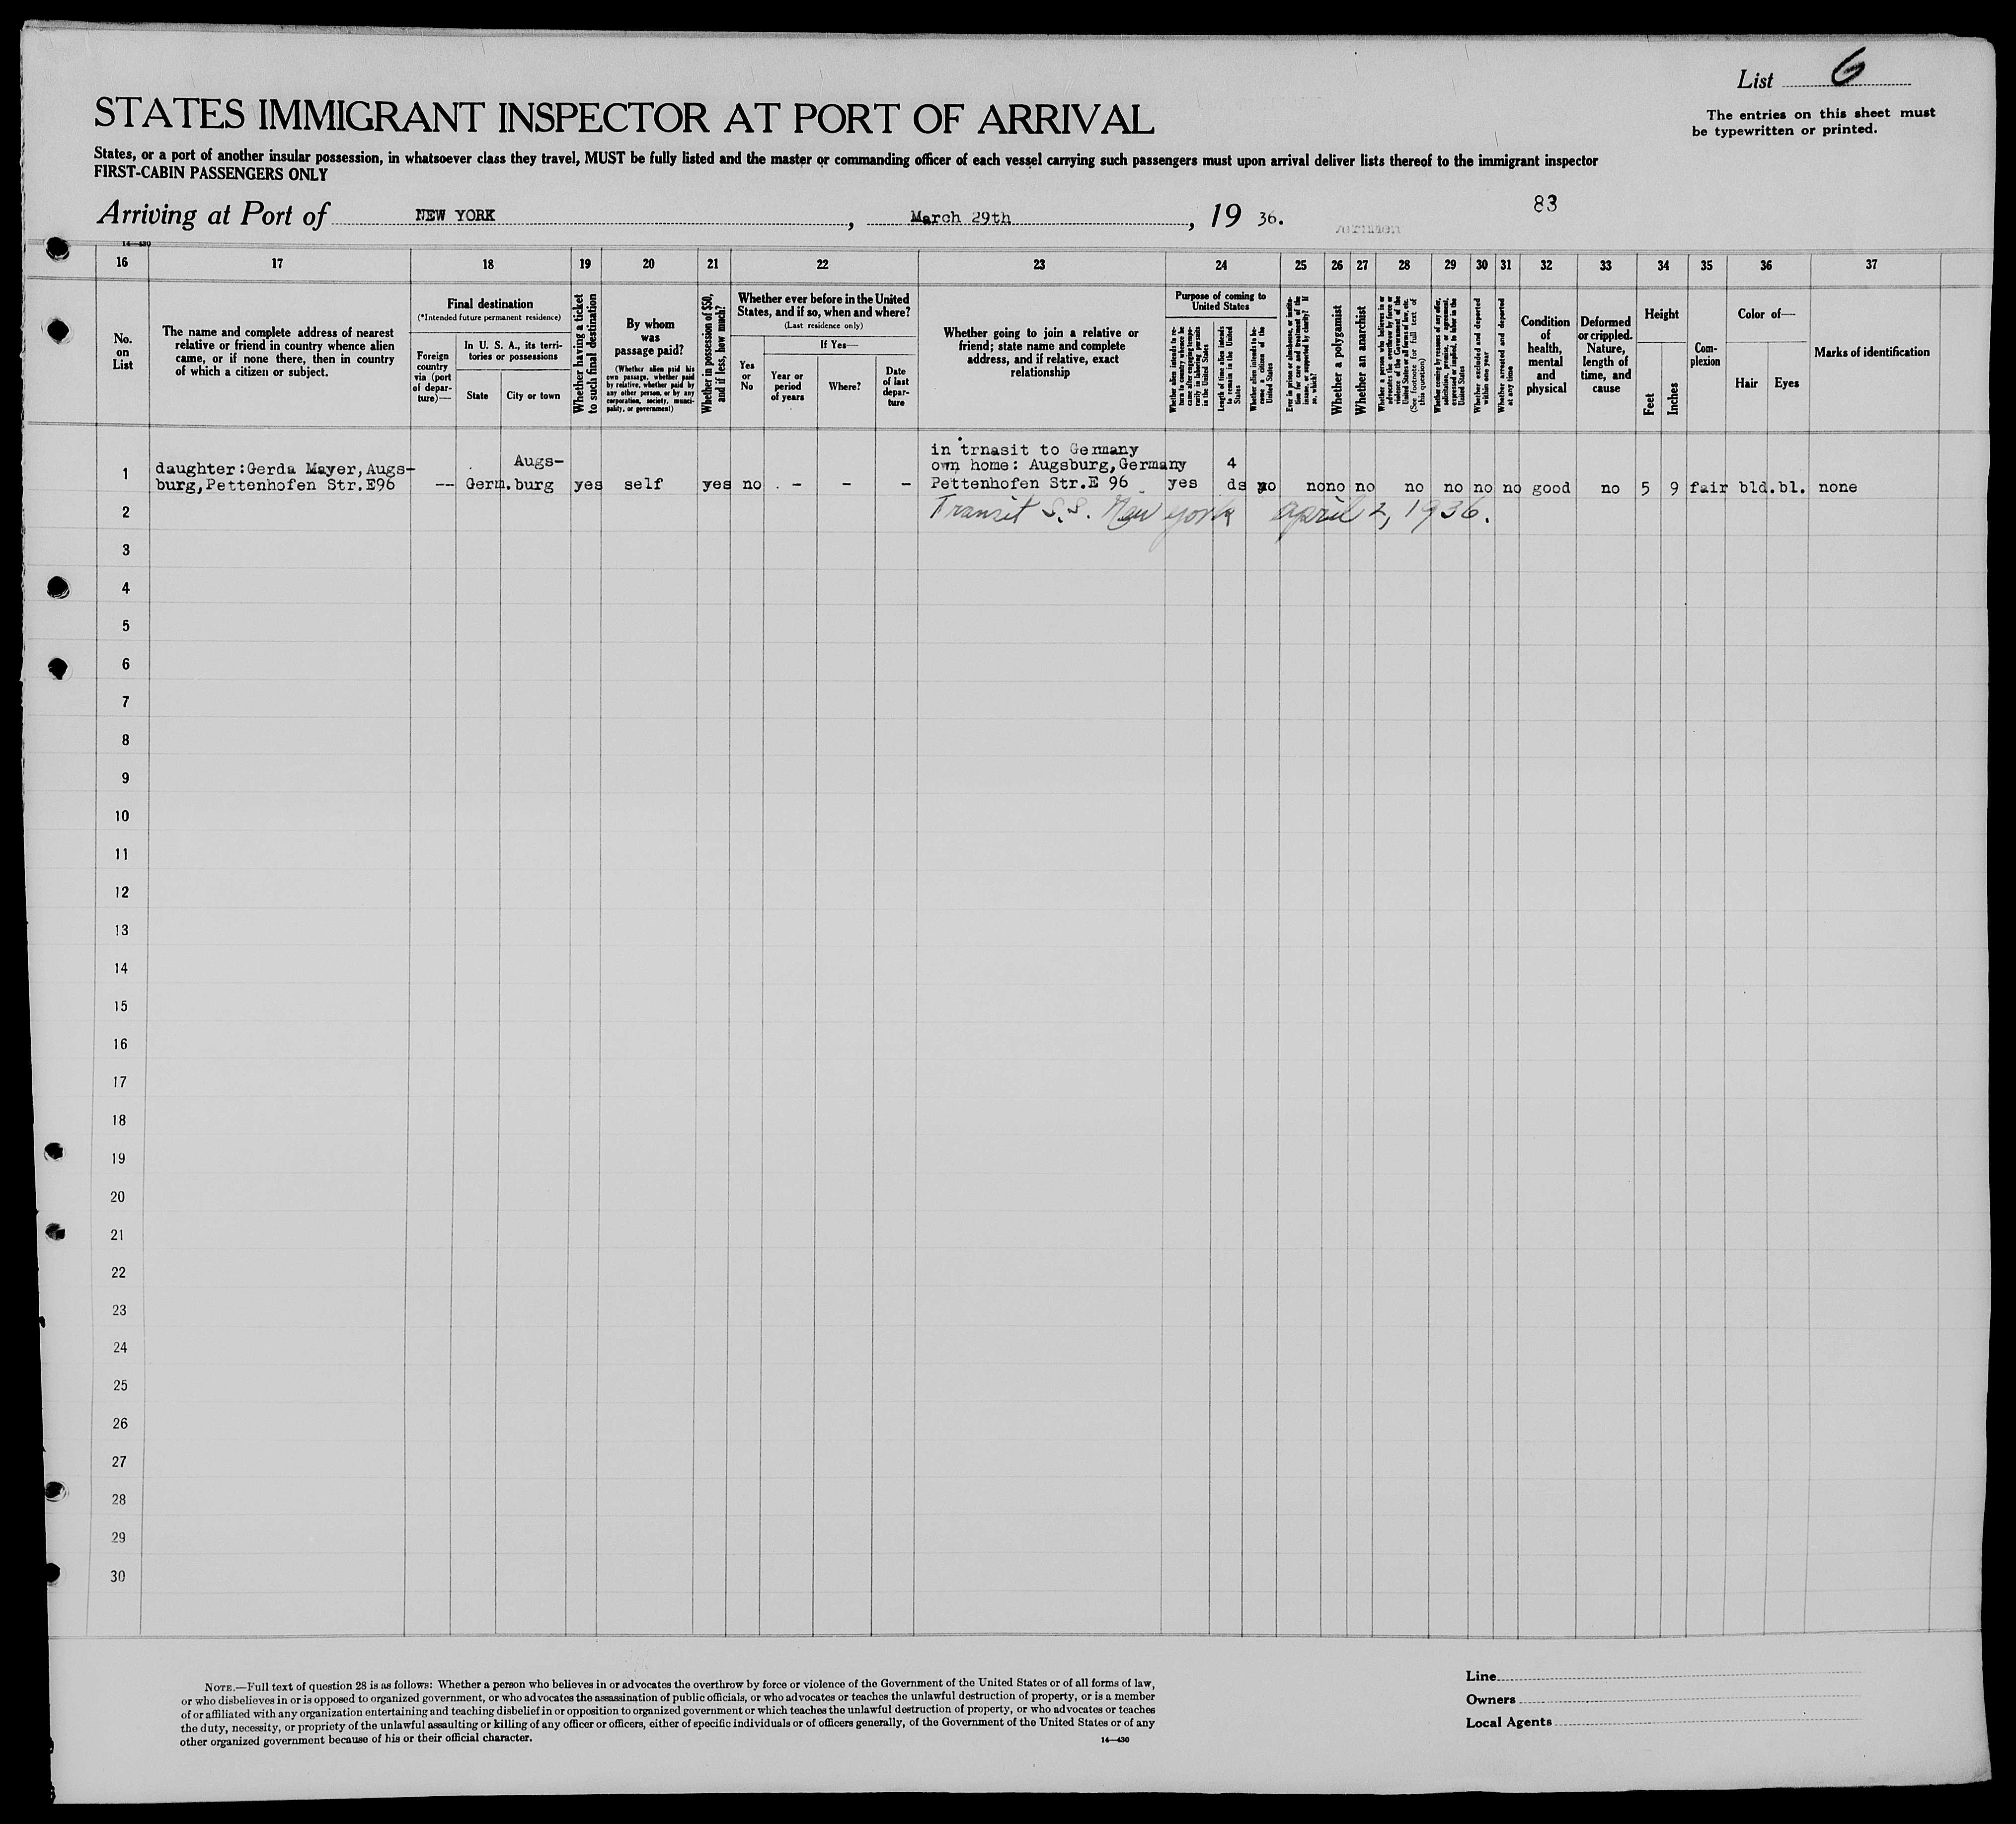 List 6
The entries on this sheet must
be typewritten or printed.
STATES IMMIGRANT INSPECTOR AT PORT OF ARRIVAL
States, or a port of another insular possession, in whatsoever class they travel, MUST be fully listed and the master or commanding officer of each vessel carrying such passengers must upon arrival deliver lists thereof to the immigrant inspector
FIRST-CABIN PASSENGERS ONLY
Arriving at Port of NEW YORK, March 29th, 19 36.
83
14—430
16 17 18 19 20 21 22 23 24 25 26 27 28 29 30 31 32 33 34 35 36 37
No.
on
List
The name and complete address of nearest
relative or friend in country whence alien
came, or if none there, then in country
of which a citizen or subject.
Final destination
(*Intended future permanent residence)
Foreign
country
via (port
of depar-
ture)—
In U. S. A., its terri-
tories or possessions
State
City or town
Whether having a ticket
to such final destination
By whom
was
passage paid?
(Whether alien paid his
own passage, whether paid
by relative, whether paid by
any other person, or by any
corporation, society, munici-
pality, or government)
Whether in possession of $50,
and if less, how much?
Whether ever before in the United
States, and if so, when and where?
(Last residence only)
Yes
or
No
If Yes—
Year or
period
of years
Where?
Date
of last
depar-
ture
Whether going to join a relative or
friend; state name and complete
address, and if relative, exact
relationship
Purpose of coming to
United States
Whether alien intends to re-
turn to country whence he
came after engaging tempo-
rarily in laboring pursuits
in the United States
Length of time alien intends
to remain in the United
States
Whether alien intends to be-
come a citizen of the
United States
Ever in prison or almshouse, or institu-
tion for care and treatment of the
insane, or supported by charity? If
so, which?
Whether a polygamist
Whether an anarchist
Whether a person who believes in or
advocates the overthrow by force or
violence of the Government of the
United States or all forms of law, etc.
(See footnote for full text of
this question)
Whether coming by reasons of any offer,
solicitation, promise, or agreement,
expressed or implied, to labor in the
United States
Whether excluded and deported
within one year
Whether arrested and deported
at any time
Condition
of
health,
mental
and
physical
Deformed
or crippled.
Nature,
length of
time, and
cause
Height
Feet
Inches
Com-
plexion
Color of—
Hair
Eyes
Marks of identification
in trnasit to Germany
Augs-
daughter:Gerda Mayer, Augs- own home: Augsburg, Germany 4
1 burg,Pettenhofen Str.E96 -- Germ. burg yes self yes no - - - Pettenhofen Str.E 96 yes ds no no no no no no no no good no 5 9 fair bld. bl. none
2 Transit S.S. New York April 2, 1936.
3
4
5
6
7
8
9
10
11
12
13
14
15
16
17
18
19
20
21
22
23
24
25
26
27
28
29
30
NOTE.—Full text of question 28 is as follows: Whether a person who believes in or advocates the overthrow by force or violence of the Government of the United States or of all forms of law,
or who disbelieves in or is opposed to organized government, or who advocates the assassination of public officials, or who advocates or teaches the unlawful destruction of property, or is a member
of or affiliated with any organization entertaining and teaching disbelief in or opposition to organized government or which teaches the unlawful destruction of property, or who advocates or teaches
the duty, necessity, or propriety of the unlawful assaulting or killing of any officer or officers, either of specific individuals or of officers generally, of the Government of the United States or of any
other organized government because of his or their official character.
14—430
Line
Owners
Local Agents